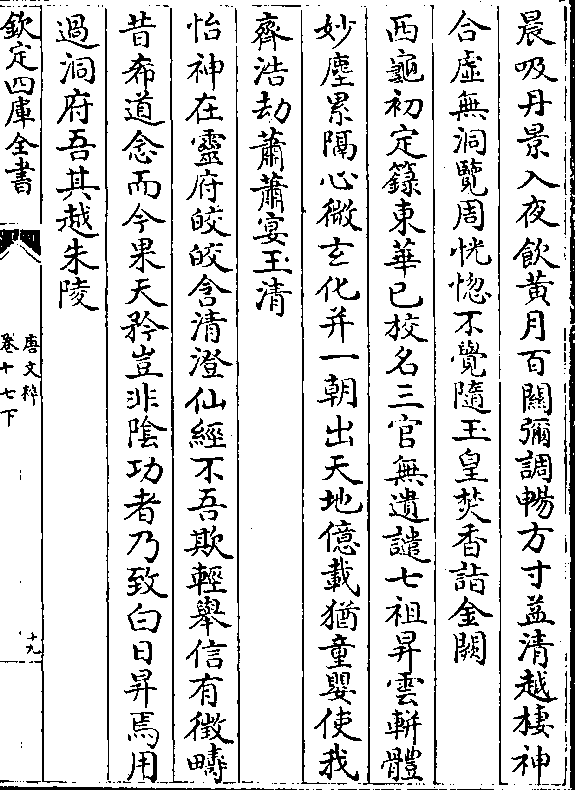 晨吸丹景入夜飲黃月百關彌調暢方寸益清越棲神
合虛無洞覽周恍惚不覺隨玉皇焚香詣金闕
西龜初定籙東華已校名三官無遺譴七祖昇雲軿體
妙塵累隔心微玄化并一朝出天地億載猶童嬰使我
齊浩劫蕭蕭宴玉清
怡神在靈府皎皎含清澄仙經不吾欺輕舉信有徵疇
昔希道念而今果天矜豈非陰功者乃致白日昇焉用
過洞府吾其越朱陵
欽定四庫全書
唐文粹
卷十七下
十九